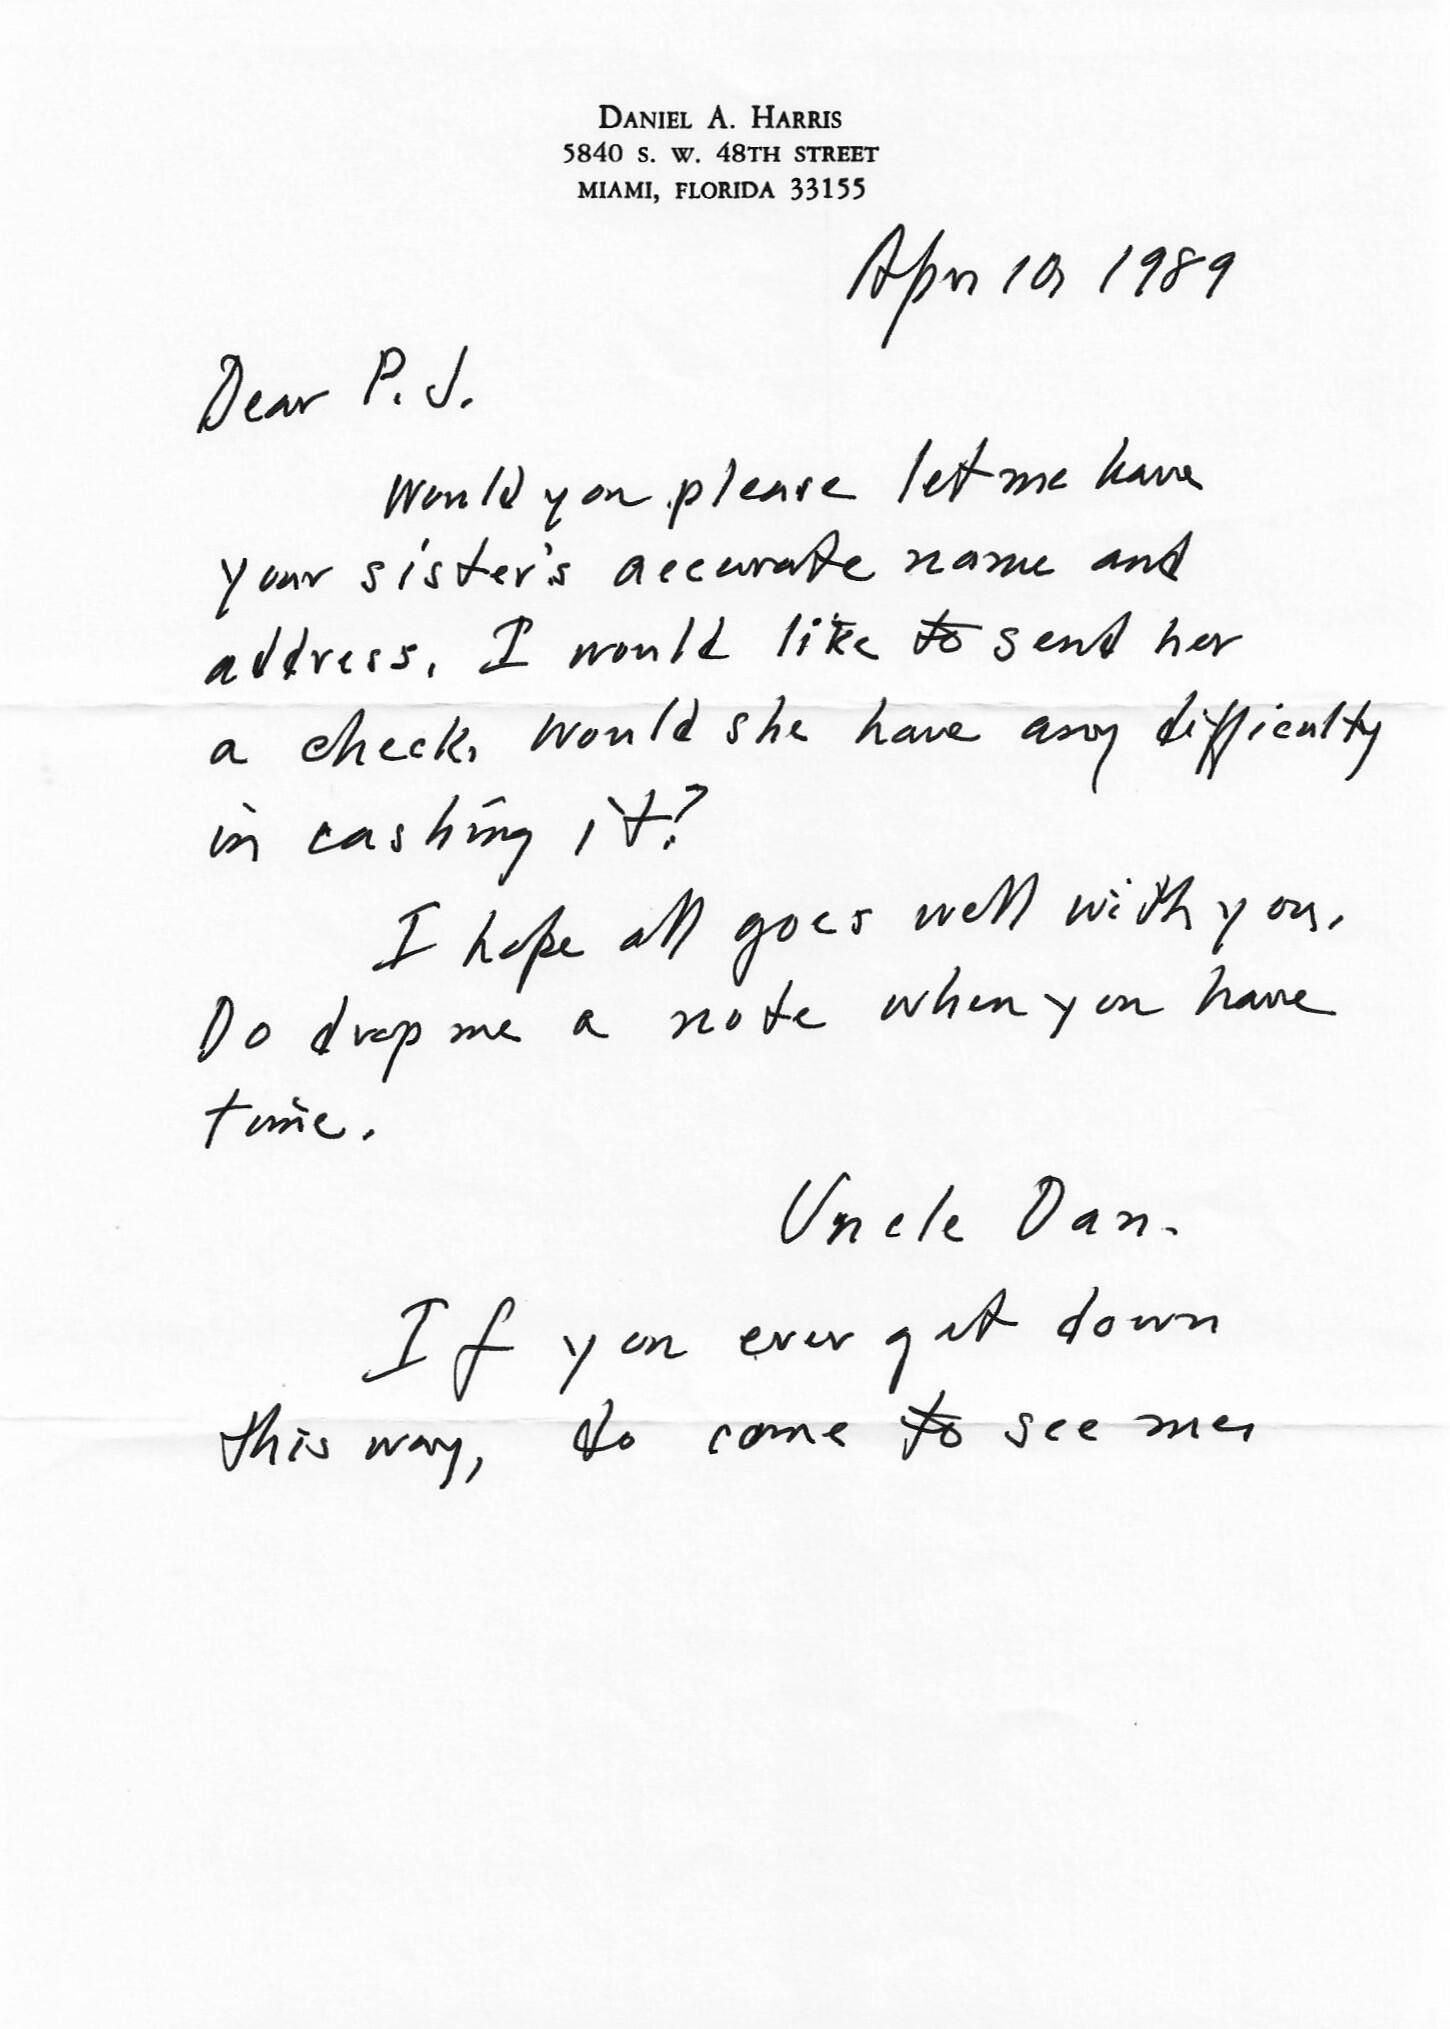 DANIEL A. HARRIS
5840 S. W. 48TH STREET
MIAMI, FLORIDA 33155
Apr 10, 1989
Dear P. J.
Would you please let me have
your sister's accurate name and
address. I would like to send her
a check. Would she have any difficulty
in cashing it?
I hope all goes well with you.
Do drop me a note when you have
time.
Uncle Dan.
If you ever get down
this way, do come to see me.